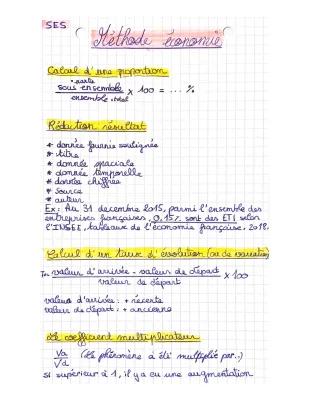 SES
Méthode économie
Calcul d'une proportion
• partie
sous ensemble
x 100 = ... %
ensemble • total
Rédaction résultat
* donnée fournie soulignée
* titre
* donnée spaciale
* donnée temporelle
* donnée chiffrée
* source
* auteur
Ex : Au 31 decembre 2015, parmi l'ensemble des
entreprises françaises, 0,15% sont des ETI selon
l'INSEE, tableaux de l'économie française. 2018.
Calcul d'un taux d'évolution (ou de variation)
Tx= valeur d'arrivée - valeur de départ x 100
valeur de départ
valeur d'arrivée : + récente
valeur de départ : + ancienne
Le coefficient multiplicateur
Va
Vd (le phénomène a été multiplié par..)
si supérieur à 1, il y a eu une augmentation